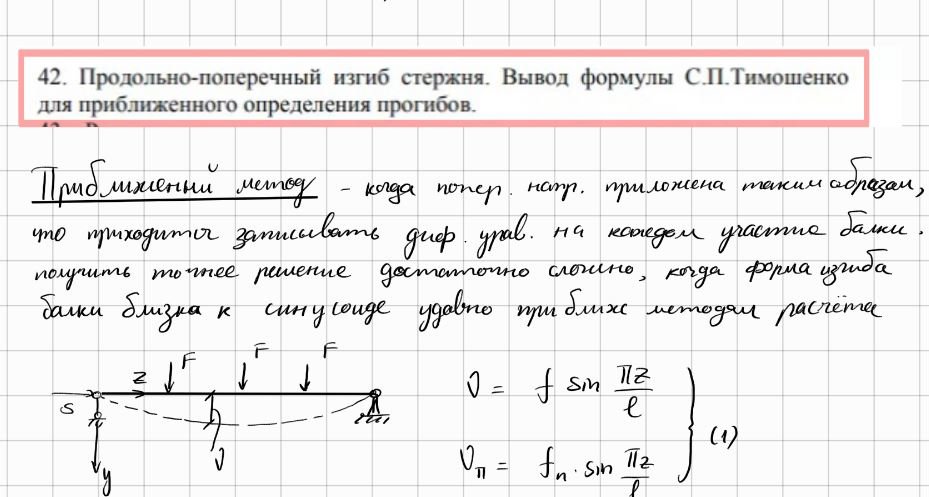 42. Продольно-поперечный изгиб стержня. Вывод формулы С.П.Тимошенко
для приближенного определения прогибов.
Приближенный метод - когда попер. нагр. приложена таким образом,
что приходится записывать диф. урав. на каждом участке балки.
получить точнее решение достаточно сложно, когда форма изгиба
балки близка к синусоиде удобно приближ методом расчёта
F F F
z
S
y
υ
υ = f sin πz/ℓ
(1)
υп = fп · sin πz/ℓ